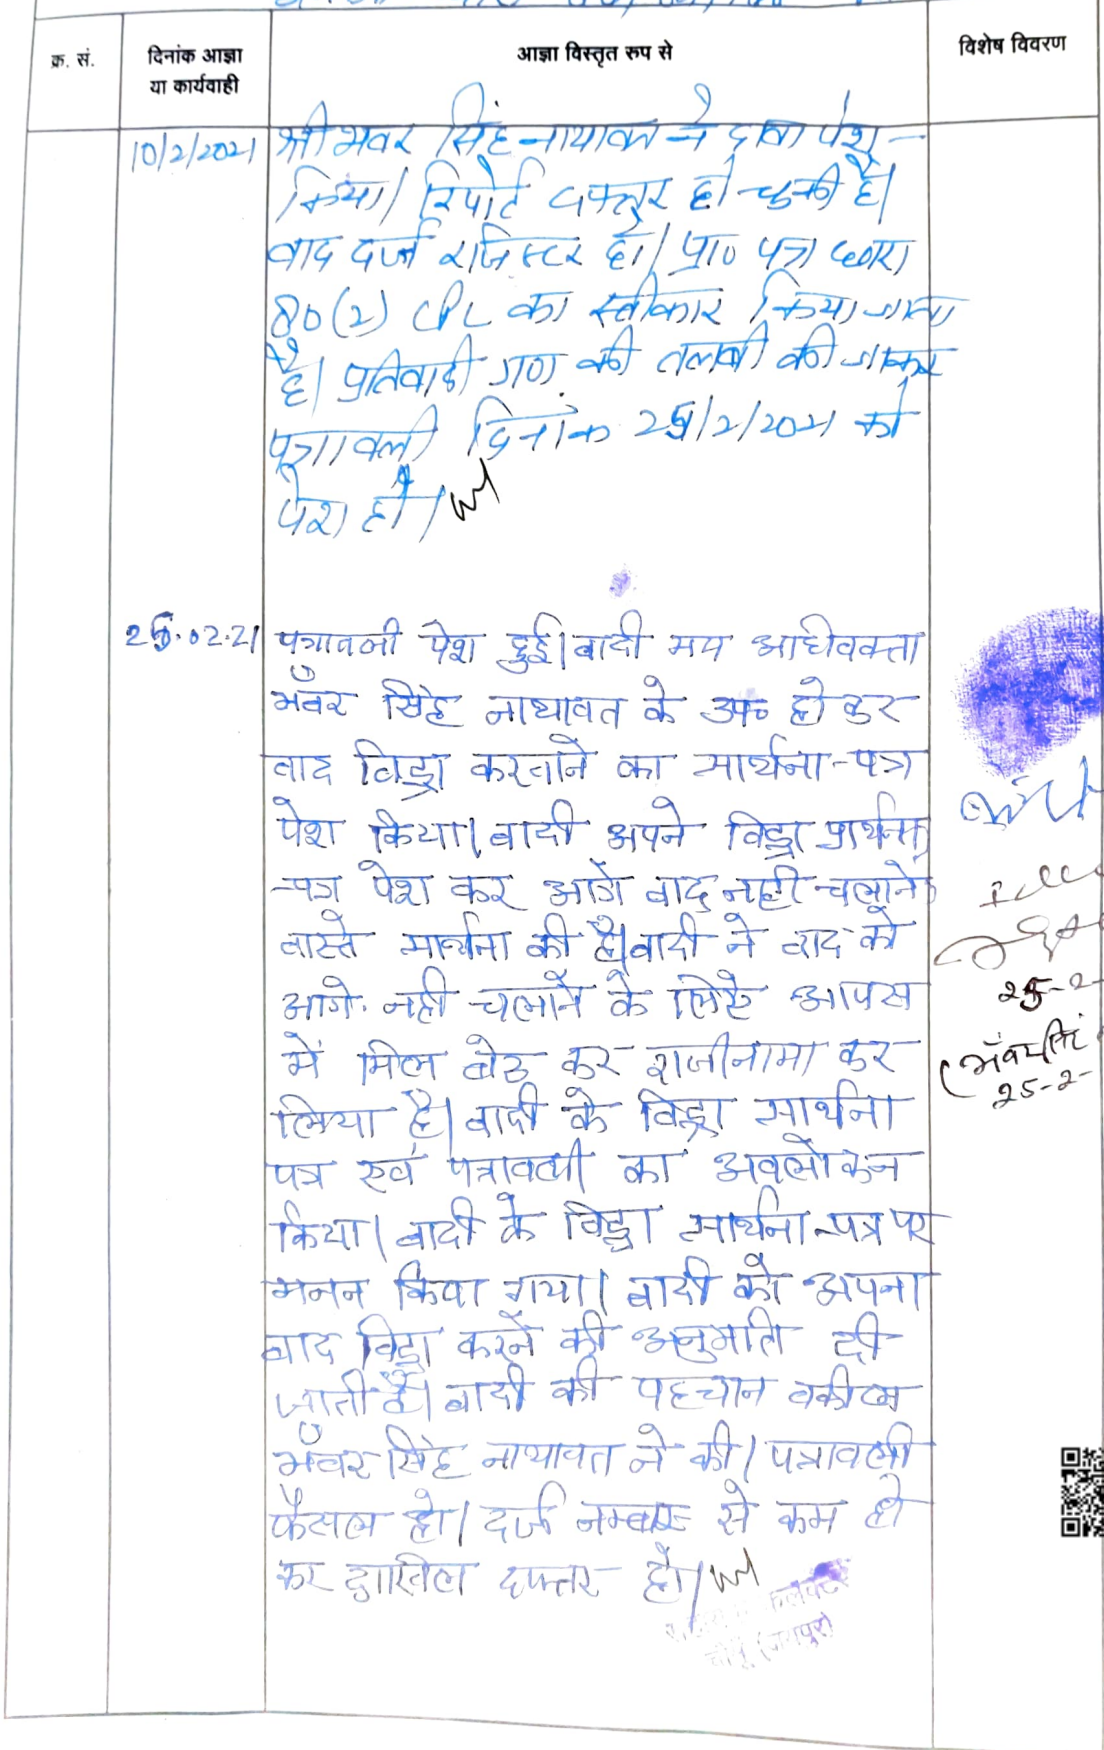 क्र. सं.
दिनांक आज्ञा
या कार्यवाही
आज्ञा विस्तृत रुप से
विशेष विवरण
10/2/2021 श्री भवर सिंह नाथावत ने दावा पेश
किया। रिपोर्ट दफ्तर हो चुकी है।
वाद दर्ज रजिस्टर हो। प्रा० पत्र धारा
80(2) CPC का स्वीकार किया जाता
है। प्रतिवादी गण की तलबी की जाकर
पत्रावली दिनांक 25/2/2021 को
पेश हो।
25.02.21 पत्रावली पेश हुई। वादी मय अधिवक्ता
भँवर सिंह नाथावत के उप० होकर
वाद विड्रा करवाने का प्रार्थना-पत्र
पेश किया। वादी अपने विड्रा प्रार्थना
-पत्र पेश कर आगे वाद नही चलाने
वास्ते प्रार्थना की है। वादी ने वाद को
आगे नही चलाने के लिए आपस
में मिल बेठ कर राजीनामा कर
लिया है। वादी के विड्रा प्रार्थना
पत्र एवं पत्रावली का अवलोकन
किया। वादी के विड्रा प्रार्थना-पत्र पर
मनन किया गया। वादी को अपना
वाद विड्रा करने की अनुमति दी
जाती है। वादी की पहचान वकील
भँवर सिंह नाथावत ने की। पत्रावली
फैसल हो। दर्ज नम्बर से कम हो
कर दाखिल दफ्तर हो।
25-2-
(भँवरसिं
25-2-
कलक्टर
(जयपुर)